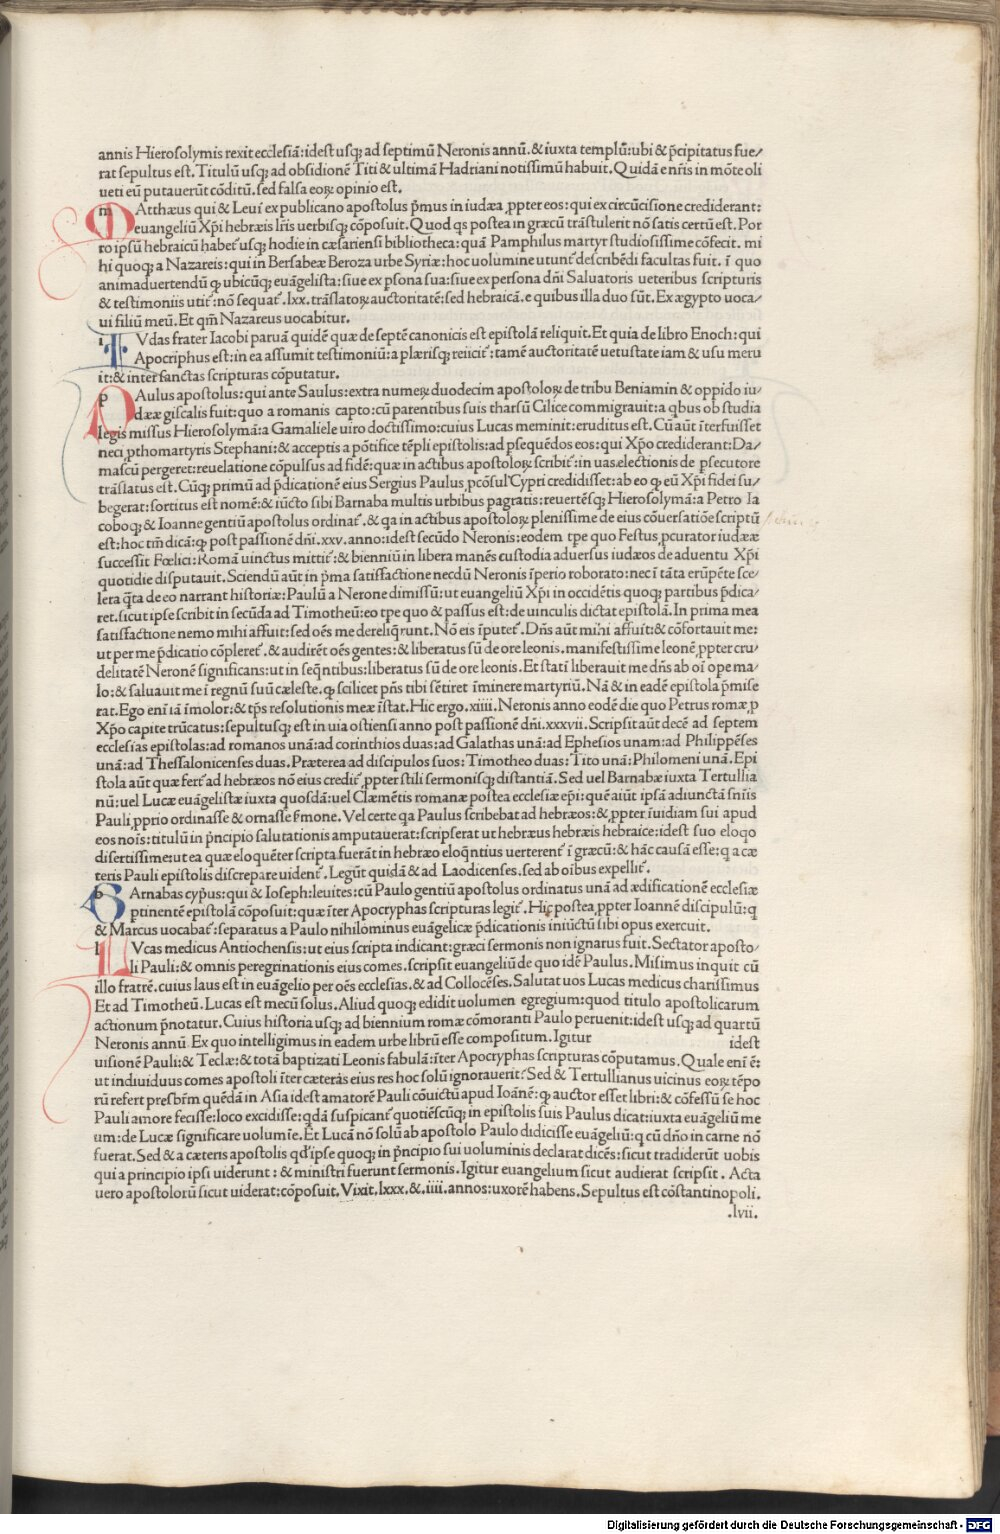 annis Hierosolymis rexit ecclesiā: idest usq; ad septimū Neronis annū. & iuxta templū: ubi & p̄cipitatus fue/
rat sepultus est. Titulū usq; ad obsidionē Titi & ultimā Hadriani notissimū habuit. Quidā e nr̄is in mōte oli
ueti eū putauerūt cōditū. sed falsa eoꝝ opinio est.
m Atthæus qui & Leui ex publicano apostolus p̄mus in iudæa ꝓpter eos: qui ex circūcisione crediderant:
euangeliū Xp̄i hebræis lr̄is uerbisq; cōposuit. Quod qs postea in græcū trāstulerit nō satis certū est. Por
ro ipsū hebraicū habet̄ usq; hodie in cæsariensi bibliotheca: quā Pamphilus martyr studiosissime cōfecit. mi
hi quoq; a Nazareis: qui in Bersabeæ Beroza urbe Syriæ: hoc uolumine utunt̄ describēdi facultas fuit. ī quo
animaduertendū ꝙ ubicūq; euāgelista: siue ex ꝑsona sua: siue ex persona dn̄i Saluatoris ueteribus scripturis
& testimoniis utit̄: nō sequat̄. lxx. trāslatoꝝ auctoritatē: sed hebraicā. e quibus illa duo sūt. Ex ægypto uoca/
ui filiū meū. Et qm̄ Nazareus uocabitur.
i Vdas frater Iacobi paruā quidē quæ de septē canonicis est epistolā reliquit. Et quia de libro Enoch: qui
Apocriphus est: in ea assumit testimoniū: a plærisq; reiicit̄: tamē auctoritatē uetustate iam & usu meru
it: & inter sanctas scripturas cōputatur.
p Aulus apostolus: qui ante Saulus: extra numeꝝ duodecim apostoloꝝ de tribu Beniamin & oppido iu/
dææ giscalis fuit: quo a romanis capto: cū parentibus suis tharsū Cilice commigrauit: a qbus ob studia
legis missus Hierosolymā: a Gamaliele uiro doctissimo: cuius Lucas meminit: eruditus est. Cū aūt īterfuisset
neci ꝓthomartyris Stephani: & acceptis a pōtifice tēpli epistolis: ad ꝑsequēdos eos: qui Xp̄o crediderant: Da/
mascū pergeret: reuelatione cōpulsus ad fidē: quæ in actibus apostoloꝝ scribit̄: in uas electionis de ꝑsecutore
trāslatus est. Cūq; primū ad p̄dicationē eius Sergius Paulus ꝓcōsul Cypri credidisset: ab eo ꝙ eū Xp̄i fidei su/
begerat: sortitus est nomē: & iūcto sibi Barnaba multis urbibus pagratis: reuertēsq; Hierosolymā: a Petro Ia
coboq; & Ioanne gentiū apostolus ordinat̄. & qa in actibus apostoloꝝ plenissime de eius cōuersatiōe scriptū
est: hoc tm̄ dicā: ꝙ post passionē dn̄i. xxv. anno: idest secūdo Neronis: eodem tpe quo Festus ꝓcurator iudææ
successit Fœlici: Romā uinctus mittit̄: & bienniū in libera manēs custodia aduersus iudæos de aduentu Xp̄i
quotidie disputauit. Sciendū aūt in p̄ma satisfactione necdū Neronis īperio roborato: nec ī tāta erūpēte sce/
lera q̄ta de eo narrant historiæ: Paulū a Nerone dimissū: ut euangeliū Xp̄i in occidētis quoq; partibus p̄dica/
ret. sicut ipse scribit in secūda ad Timotheū: eo tpe quo & passus est: de uinculis dictat epistolā. In prima mea
satisfactione nemo mihi affuit: sed oēs me dereliq̄runt. Nō eis īputet̄. Dn̄s aūt mihi affuit: & cōfortauit me:
ut per me p̄dicatio cōpleret̄. & audirēt oēs gentes: & liberatus sū de ore leonis. manifestissime leonē ꝓpter cru/
delitatē Neronē significans: ut in seq̄ntibus: liberatus sū de ore leonis. Et stati liberauit me dn̄s ab oī ope ma/
lo: & saluauit me ī regnū suū cæleste. ꝙ scilicet pn̄s tibi sētiret īminere martyriū. Nā & in eadē epistola p̄mise
rat. Ego enī iā īmolor: & tp̄s resolutionis meæ īstat. Hic ergo. xiiii. Neronis anno eodē die quo Petrus romæ ꝓ
Xp̄o capite trūcatus: sepultusq; est in uia ostiensi anno post passionē dn̄i. xxxvii. Scripsit aūt decē ad septem
ecclesias epistolas: ad romanos unā: ad corinthios duas: ad Galathas unā: ad Ephesios unam: ad Philippēses
unā: ad Thessalonicenses duas. Præterea ad discipulos suos: Timotheo duas: Tito unā: Philomeni unā. Epi
stola aūt quæ fert̄ ad hebræos nō eius credit̄ ꝓpter stili sermonisq; distantiā. Sed uel Barnabæ iuxta Tertullia
nū: uel Lucæ euāgelistæ iuxta quosdā: uel Clæmētis romanæ postea ecclesiæ ep̄i: quē aiūt ipsā adiunctā sn̄iis
Pauli ꝓprio ordinasse & ornasse ẜmone. Vel certe qa Paulus scribebat ad hebræos: & ꝓpter īuidiam sui apud
eos noīs: titulū in p̄ncipio salutationis amputauerat: scripserat ut hebræus hebræis hebraice: idest suo eloqo
disertissime: ut ea quæ eloquēter scripta fuerāt in hebræo eloq̄ntius uerterent̄ ī græcū: & hāc causā esse: q a cæ
teris Pauli epistolis discrepare uident̄. Legūt quidā & ad Laodicenses. sed ab oībus expellit̄.
b Arnabas cyp̄us: qui & Ioseph: leuites: cū Paulo gentiū apostolus ordinatus unā ad ædificationē ecclesiæ
ꝑtinentē epistolā cōposuit: quæ īter Apocryphas scripturas legit̄. Hic postea ꝓpter Ioannē discipulū: q
& Marcus uocabat̄: separatus a Paulo nihilominus euāgelicæ p̄dicationis iniūctū sibi opus exercuit.
l Vcas medicus Antiochensis: ut eius scripta indicant: græci sermonis non ignarus fuit. Sectator aposto/
li Pauli: & omnis peregrinationis eius comes. scripsit euangeliū de quo idē Paulus. Misimus inquit cū
illo fratrē. cuius laus est in euāgelio per oēs ecclesias. & ad Collocēses. Salutat uos Lucas medicus charissimus
Et ad Timotheū. Lucas est mecū solus. Aliud quoq; edidit uolumen egregium: quod titulo apostolicarum
actionum p̄notatur. Cuius historia usq; ad biennium romæ cōmoranti Paulo peruenit: idest usq; ad quartū
Neronis annū. Ex quo intelligimus in eadem urbe librū esse compositum. Igitur idest
uisionē Pauli: & Teclæ: & totā baptizati Leonis fabulā: īter Apocryphas scripturas cōputamus. Quale enī ē:
ut indiuiduus comes apostoli īter cæteras eius res hoc solū ignorauerit? Sed & Tertullianus uicinus eoꝝ tēpo
rū refert presbm̄ quēdā in Asia idest amatorē Pauli cōuictū apud Ioānē: ꝙ auctor esset libri: & cōfessū se hoc
Pauli amore fecisse: loco excidisse: qdā suspicant̄ quotiēscūq; in epistolis suis Paulus dicat: iuxta euāgeliū me
um: de Lucæ significare uolumīe. Et Lucā nō solū ab apostolo Paulo didicisse euāgeliū: q cū dn̄o in carne nō
fuerat. Sed & a cæteris apostolis qd̄ ipse quoq; in p̄ncipio sui uoluminis declarat dicēs: sicut tradiderūt uobis
qui a principio ipsi uiderunt: & ministri fuerunt sermonis. Igitur euangelium sicut audierat scripsit. Acta
uero apostolorū sicut uiderat: cōposuit. Vixit. lxxx. &. iiii. annos: uxorē habens. Sepultus est cōstantinopoli.
.lvii.
Digitalisierung gefördert durch die Deutsche Forschungsgemeinschaft - DFG